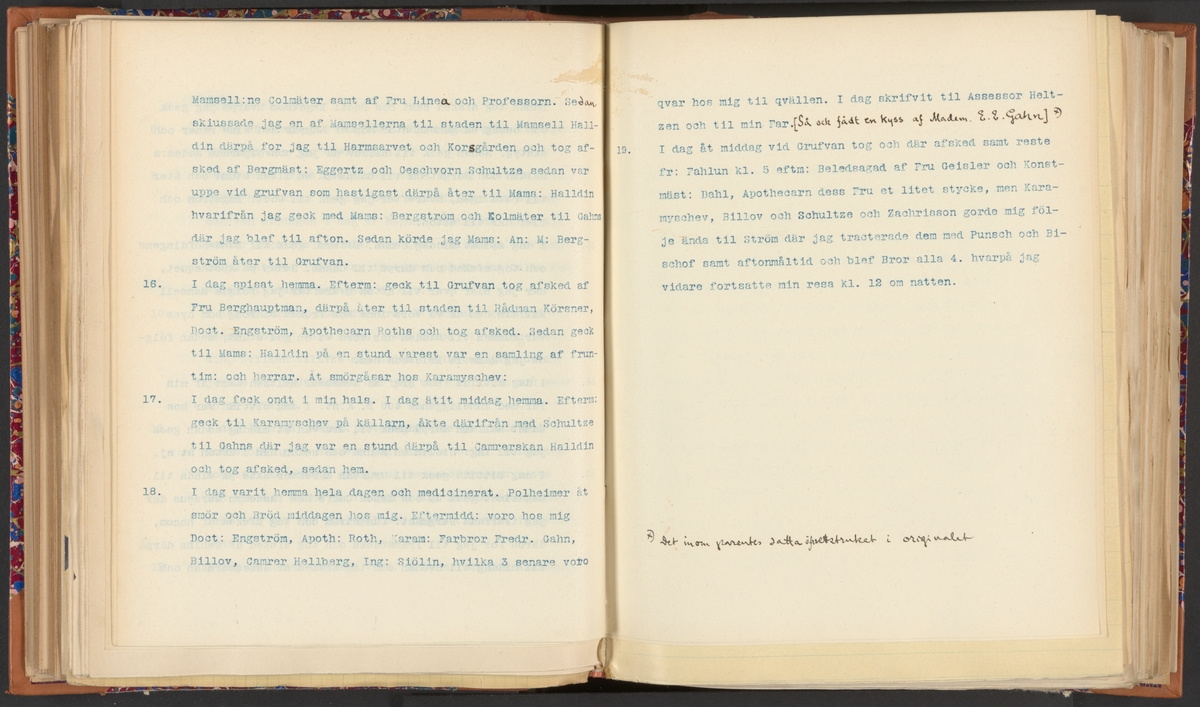 Mamsell:ne Colmäter samt af Fru Linea och Professorn. Sedan
skiussade jag en af Mamsellerna til staden til Mamsell Hall-
din därpå for jag til Harmsarvet och Korsgården och tog af-
sked af Bergmäst: Eggertz och Geschvorn Schultze sedan var
uppe vid grufvan som hastigast därpå åter til Mams: Halldin
hvarifrån jag geck med Mams: Bergström och Kolmäter til Gahns
där jag blef til afton. Sedan körde jag Mams: An: M: Berg-
ström åter til Grufvan.
16. I dag spisat hemma. Efterm: geck til Grufvan tog afsked af
Fru Berghauptman, därpå åter til staden til Rådman Körsner,
Doct. Engström, Apothecarn Roths och tog afsked. Sedan geck
til Mams: Halldin på en stund varest var en samling af frun-
tim: och herrar. Åt smörgåsar hos Karamyschev:
17. I dag feck ondt i min hals. I dag ätit middag hemma. Efterm:
geck til Karamyschev på källarn, åkte därifrån med Schultze
til Gahns där jag var en stund därpå til Camrerskan Halldin
och tog afsked, sedan hem.
18. I dag varit hemma hela dagen och medicinerat. Polheimer åt
smör och Bröd middagen hos mig. Eftermidd: voro hos mig
Doct: Engström, Apoth: Roth, Karam: Farbror Fredr. Gahn,
Billov, Camrer Hellberg, Ing: Siölin, hvilka 3 senare voro
qvar hos mig til qvällen. I dag skrifvit til Assessor Helt-
zen och til min Far. [Så ock fådt en kyss af Madem. E. E. Gahn] *)
19. I dag åt middag vid Grufvan tog och där afsked samt reste
fr: Fahlun kl. 5 eftm: Beledsagad af Fru Geisler och Konst-
mäst: Dahl, Apothecarn dess Fru et litet stycke, men Kara-
myschev, Billov och Schultze och Zachrisson gorde mig föl-
je ända til Ström där jag tracterade dem med Punsch och Bi-
schof samt aftonmåltid och blef Bror alla 4. hvarpå jag
vidare fortsatte min resa kl. 12 om natten.
*) Det inom parentes satta i originalet